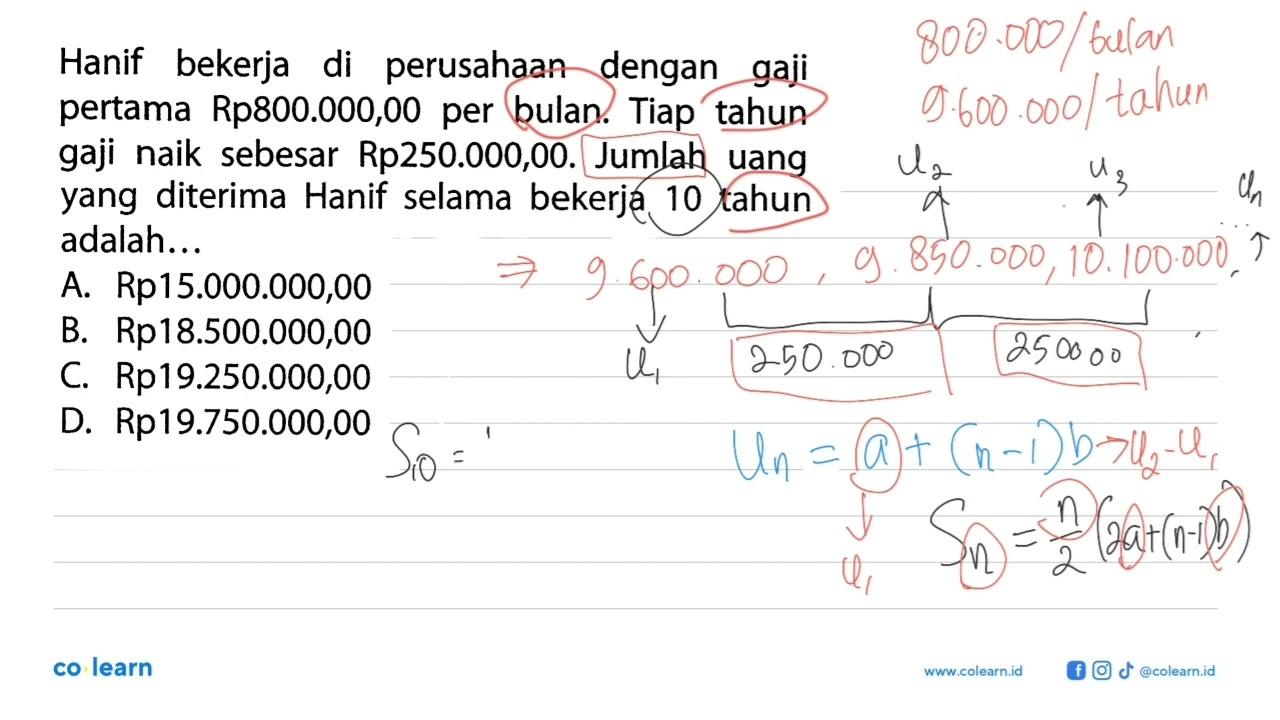 Hanif bekerja di perusahaan dengan gaji
pertama Rp800.000,00 per bulan. Tiap tahun
gaji naik sebesar Rp250.000,00. Jumlah uang
yang diterima Hanif selama bekerja 10 tahun
adalah...
A. Rp15.000.000,00
B. Rp18.500.000,00
C. Rp19.250.000,00
D. Rp19.750.000,00
800.000/bulan
9.600.000/tahun
U₂ U₃ Un
⇒ 9.600.000, 9.850.000, 10.100.000, ...
U₁ 250.000 250000
S₁₀ =
Un = a + (n-1)b → U₂-U₁
U₁
Sn = n/2 (2a+(n-1)b)
co learn
www.colearn.id
@colearn.id